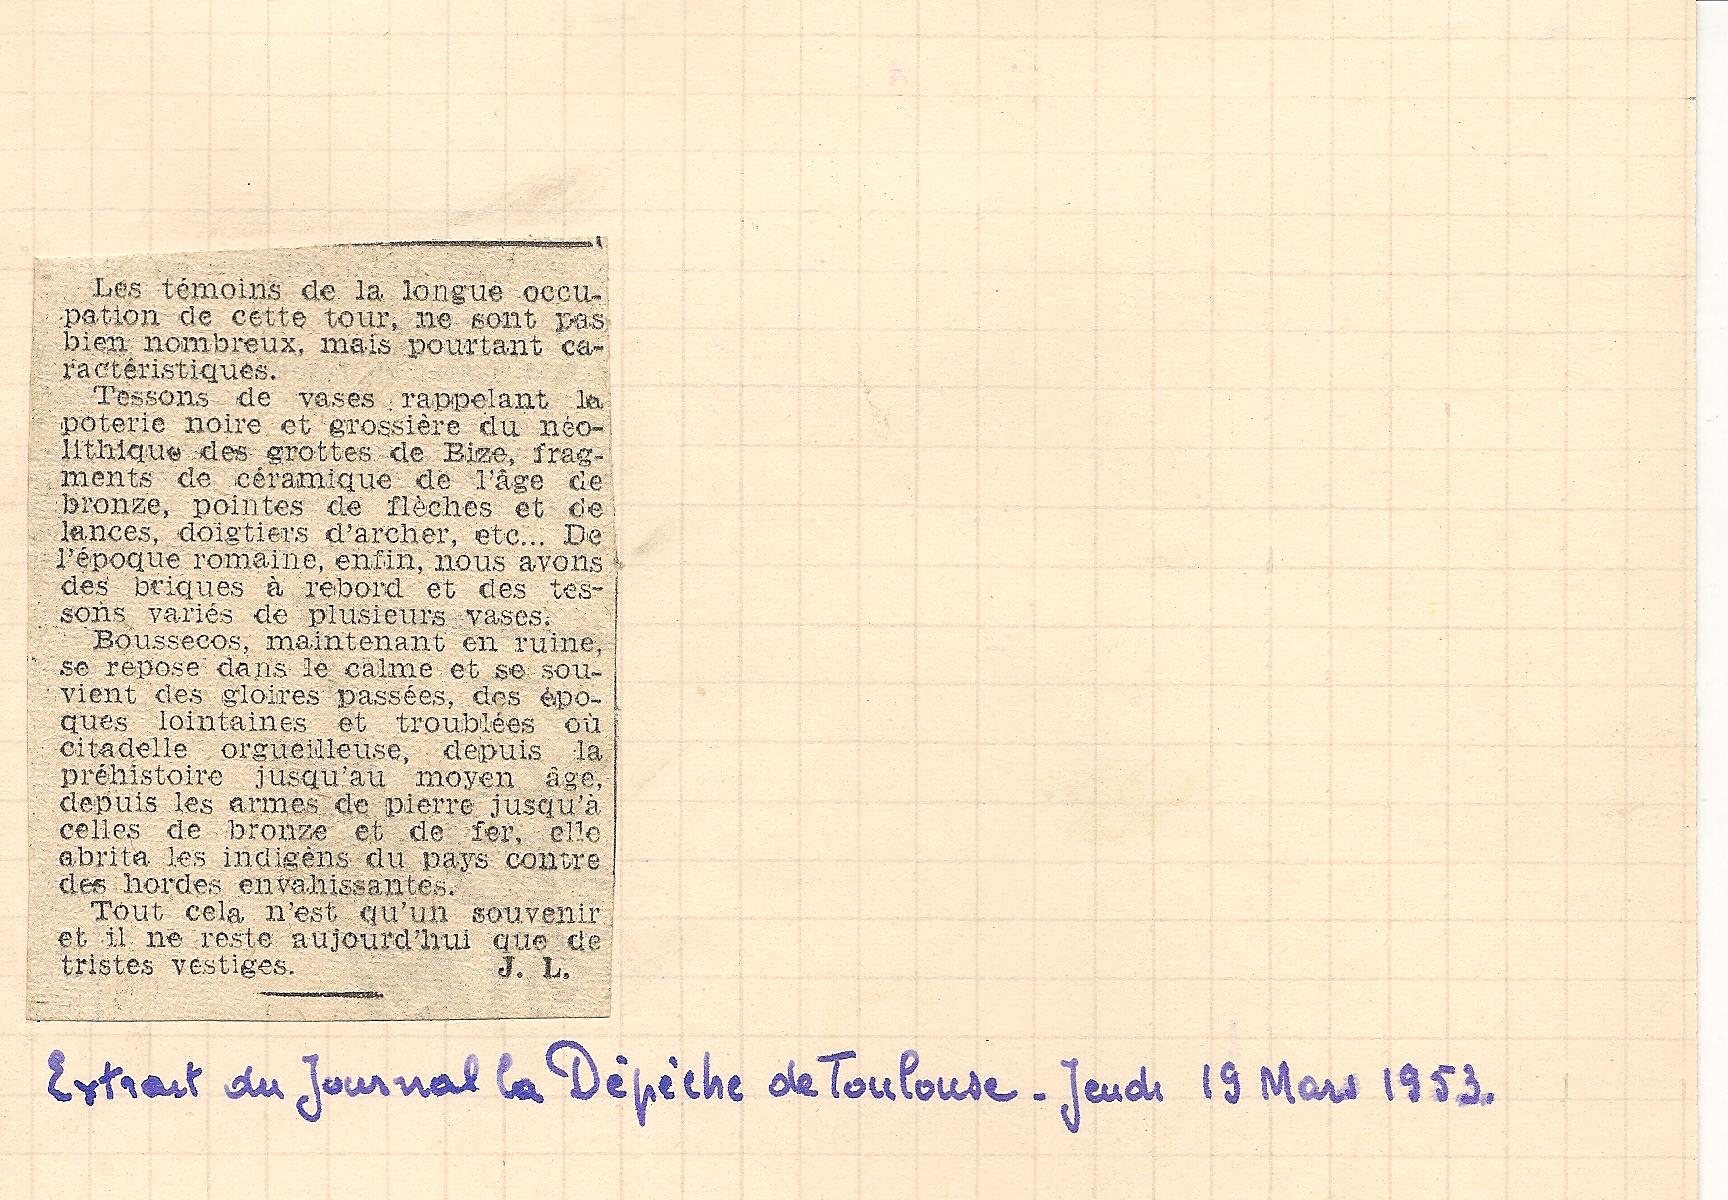 Les témoins de la longue occu-
pation de cette tour, ne sont pas
bien nombreux, mais pourtant ca-
ractéristiques.
Tessons de vases rappelant la
poterie noire et grossière du néo-
lithique des grottes de Bize, frag-
ments de céramique de l'âge de
bronze, pointes de flèches et de
lances, doigtiers d'archer, etc... De
l'époque romaine, enfin, nous avons
des briques à rebord et des tes-
sons variés de plusieurs vases.
Boussecos, maintenant en ruine,
se repose dans le calme et se sou-
vient des gloires passées, des épo-
ques lointaines et troublées où
citadelle orgueilleuse, depuis la
préhistoire jusqu'au moyen âge,
depuis les armes de pierre jusqu'à
celles de bronze et de fer, elle
abrita les indigèns du pays contre
des hordes envahissantes.
Tout cela n'est qu'un souvenir
et il ne reste aujourd'hui que de
tristes vestiges. J. L.
Extrait du Journal la Dépêche de Toulouse - Jeudi 19 Mars 1953.